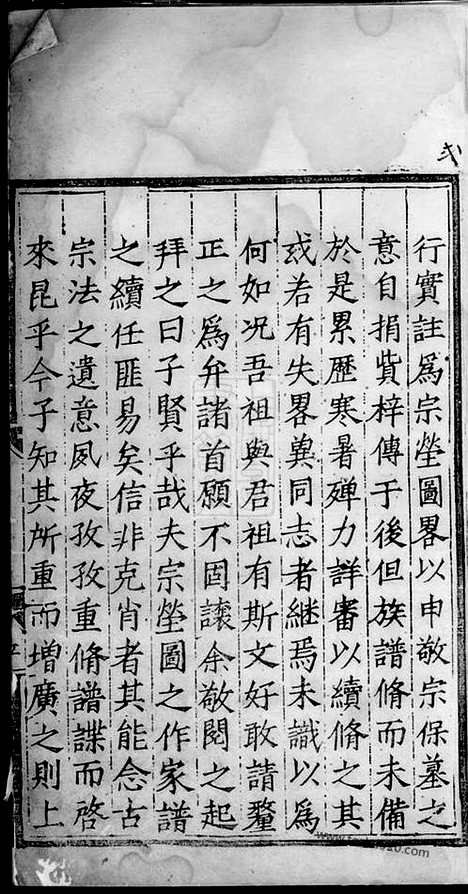 弍
行實註爲宗塋圖畧以申敬宗保墓之
意自捐貲梓傳于後但族譜脩而未備
於是累歷寒暑殫力詳審以續脩之其
或若有失畧冀同志者継焉未識以爲
何如况吾祖與君祖有斯文好敢請釐
正之爲弁諸首願不固讓余敬閱之起
拜之曰子賢乎哉夫宗塋圖之作家譜
之續任匪易矣信非克肖者其能念古
宗法之遺意夙夜孜孜重脩譜諜而啓
來昆乎今子知其所重而增廣之則上